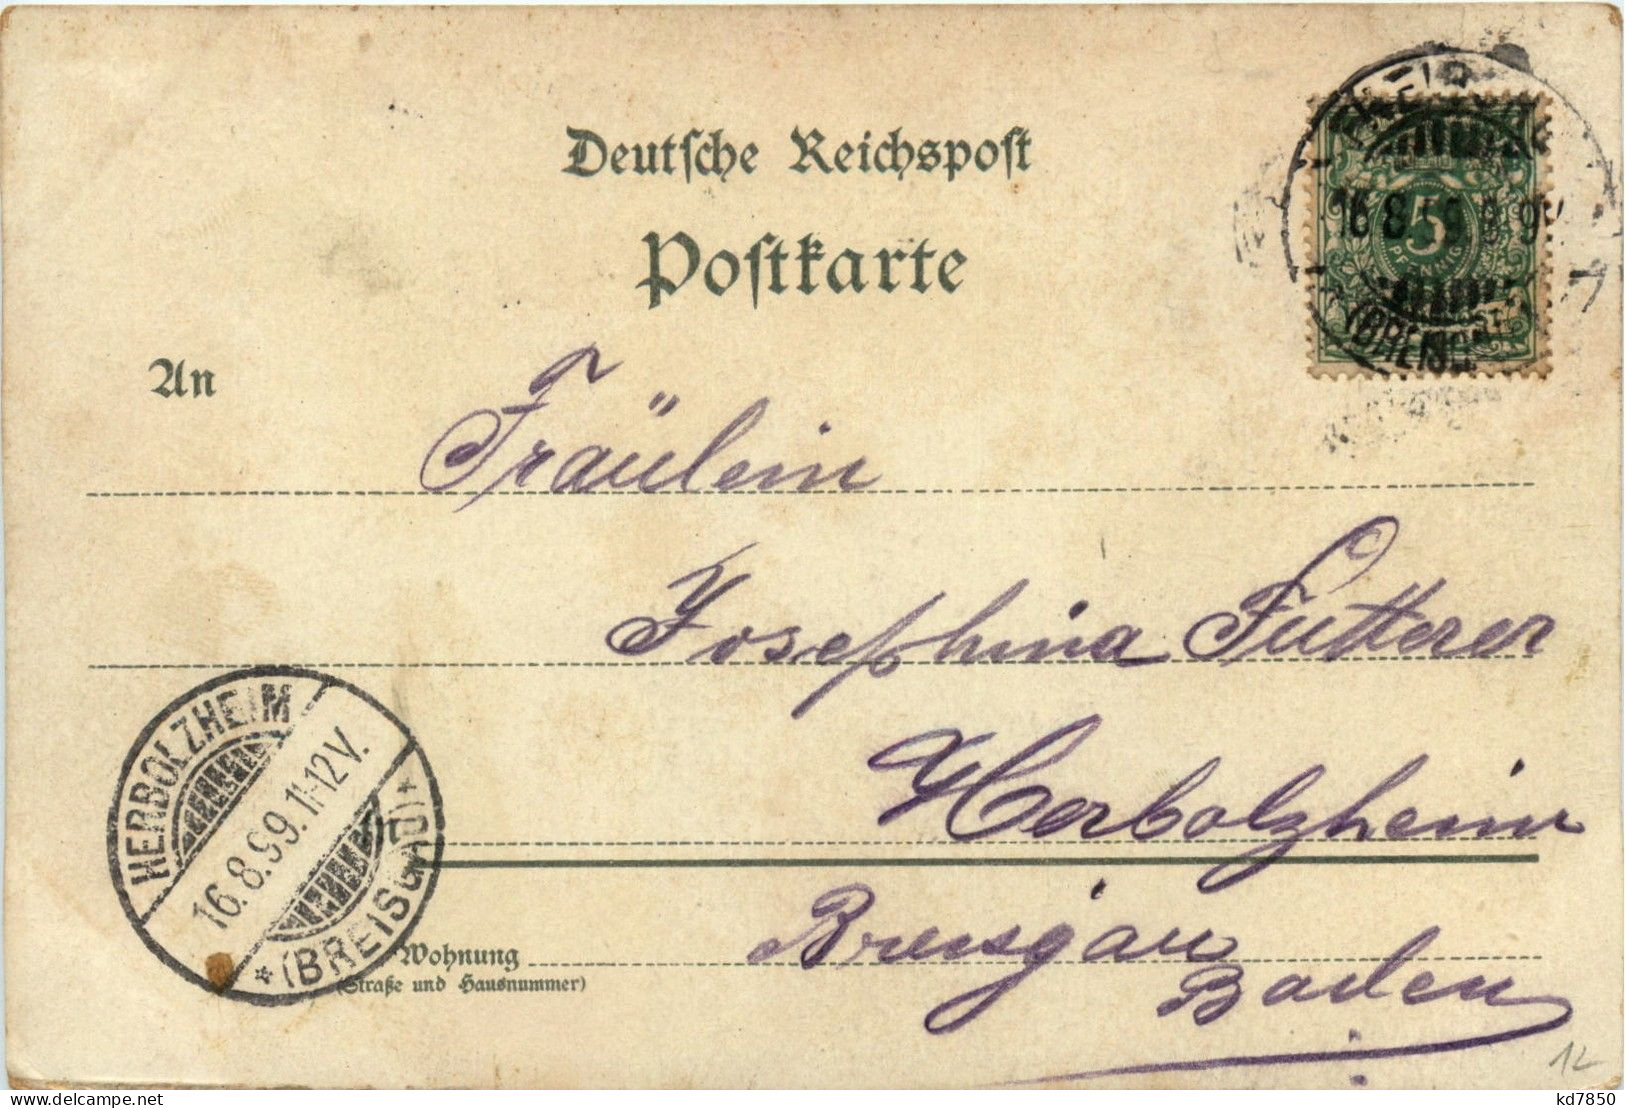 Deutsche Reichspost
Postkarte
16.8.
5
PFENNIG
(BREISG
An
Fräulein
Josephina Futterer
Herbolzheim
HERBOLZHEIM
16.8.99.11-12V.
*(BREISGAU)*
Breisgau
Baden
Wohnung
(Straße und Hausnummer)
12
delcampe.net
kd7850